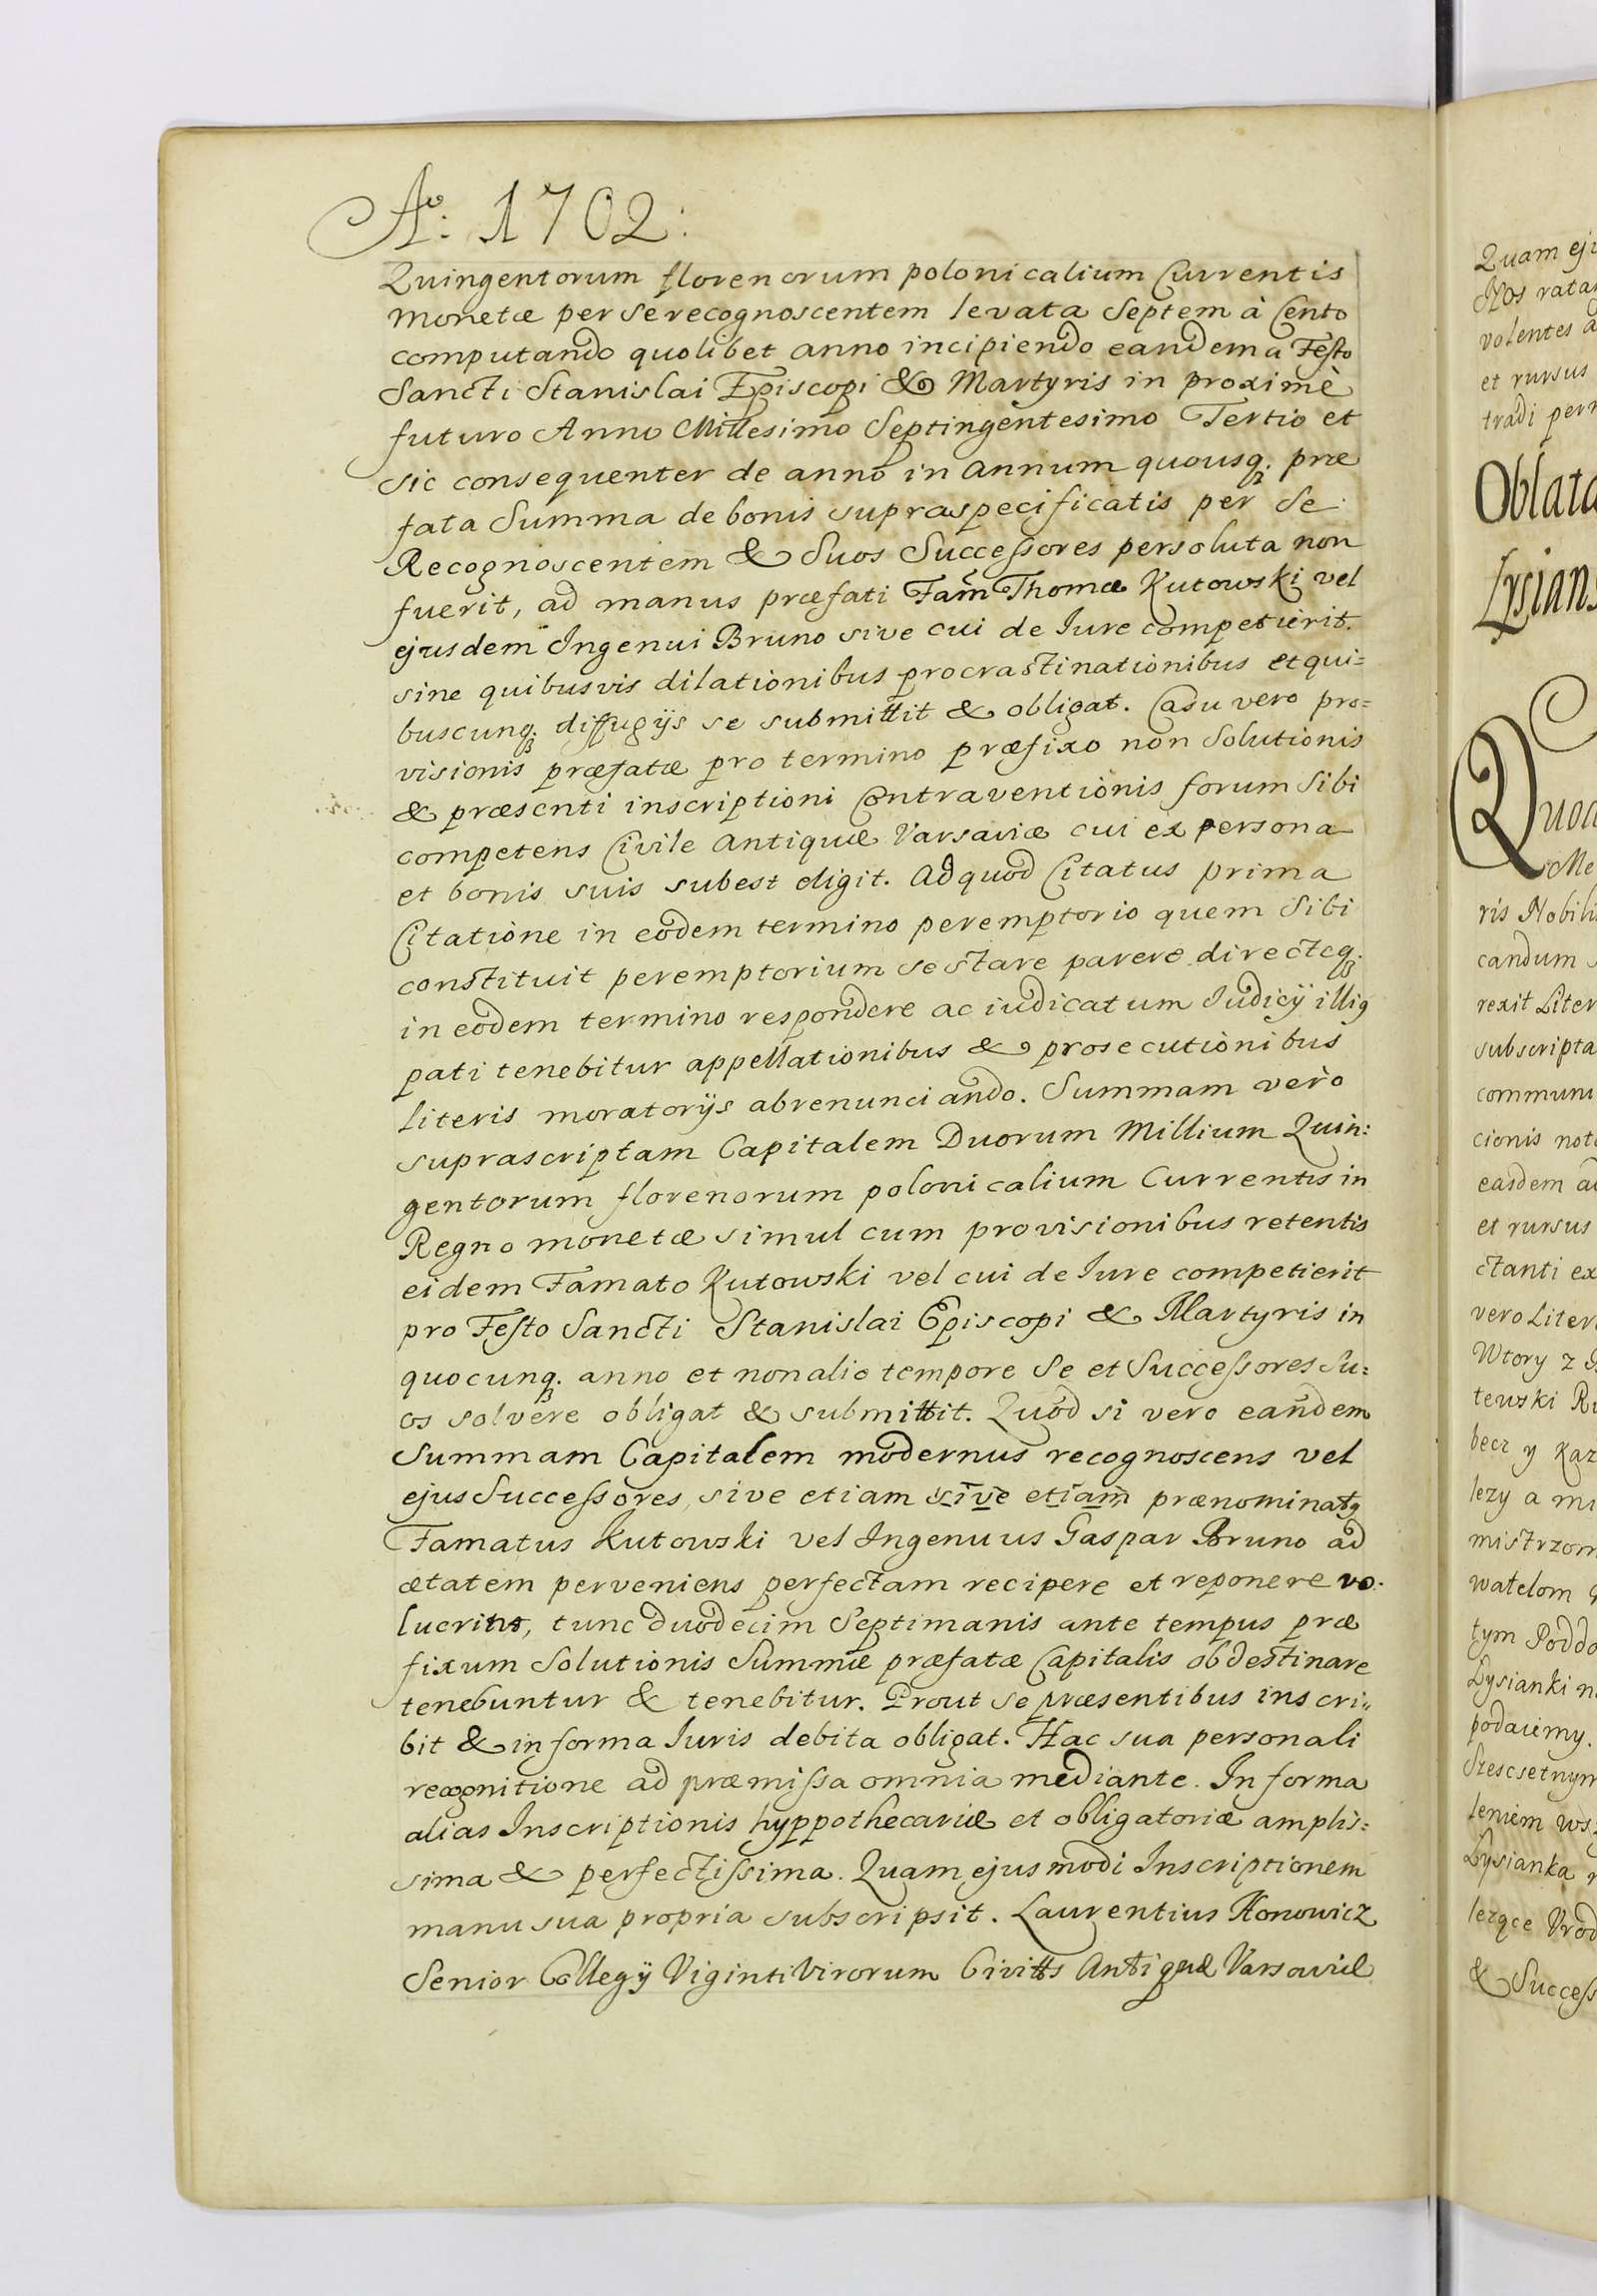 Aº: 1702:
Quingentorum florenorum polonicalium Currentis
monetæ per se recognoscentem levata Septem à Cento
computando quolibet anno incipiendo eandem a Festo
Sancti Stanislai Episcopi & Martyris in proximè
futuro Anno Millesimo Septingentesimo Tertio et
sic consequenter de anno in annum quousq. præ
fata Summa de bonis supraspecificatis per Se
Recognoscentem & Suos Successores persoluta non
fuerit, ad manus præfati Fam Thomæ Kutowski vel
ejusdem Ingenui Bruno sive cui de Iure competierit.
sine quibusvis dilationibus procrastinationibus et qui=
buscunq. diffugijs se submittit & obligat. Casu vero pro=
visionis præfatæ pro termino præfixo non Solutionis
& præsenti inscriptioni Contraventionis forum Sibi
competens Civile Antiquæ Varsaviæ cui ex persona
et bonis suis subest eligit. Ad quod Citatus prima
Citatione in eodem termino peremptorio quem Sibi
constituit peremptorium se stare parere directeq.
in eodem termino respondere ac iudicatum Iudicij illig
pati tenebitur appellationibus & prosecutionibus
literis moratorijs abrenunciando. Summam vero
suprascriptam Capitalem Duorum Millium Quin:
gentorum florenorum polonicalium Currentis in
Regno monetæ simul cum provisionibus retentis
eidem Famato Kutowski vel cui de Iure competierit
pro Festo Sancti Stanislai Episcopi & Martyris in
quocunq. anno et non alio tempore Se et Successores Su=
os solvere obligat & submittit. Quod si vero eandem
Summam Capitalem modernus recognoscens vel
ejus Successores, sive etiam sive etiam prænominatg
Famatus Kutowski vel Ingenuus Gaspar Bruno ad
ætatem perveniens perfectam recipere et reponere vo.
lucrint, tunc duodecim Septimanis ante tempus præ
fixum Solutionis Summæ præfatæ Capitalis obdestinare
tenebuntur & tenebitur. Prout se præsentibus inscri„
bit & in forma Iuris debita obligat. Hac sua personali
recognitione ad præmissa omnia mediante. In forma
alias Inscriptionis hyppothecariæ et obligatoriæ amplis=
sima & perfectissima. Quam ejusmodi Inscriptionem
manu sua propria subscripsit. Laurentius Konowicz
Senior Collegij Viginti Virorum Civitts Antiquæ Varsaviæ
Quam eju
volentes a
et rursus
Oblata
Lysians
ris Nobili
candum
rexit Liter
subscripta
communi
cionis not
easdem a
et rursus
ctanti ex
vero Liter
Wtory z
becz y Kaz
lezy a mi
mistrzom
watelom
tym Poddo
Lysianki n
podaiemy.
Szescsetnym
teniem ws
Lysianka
lezące Vrod
& Success